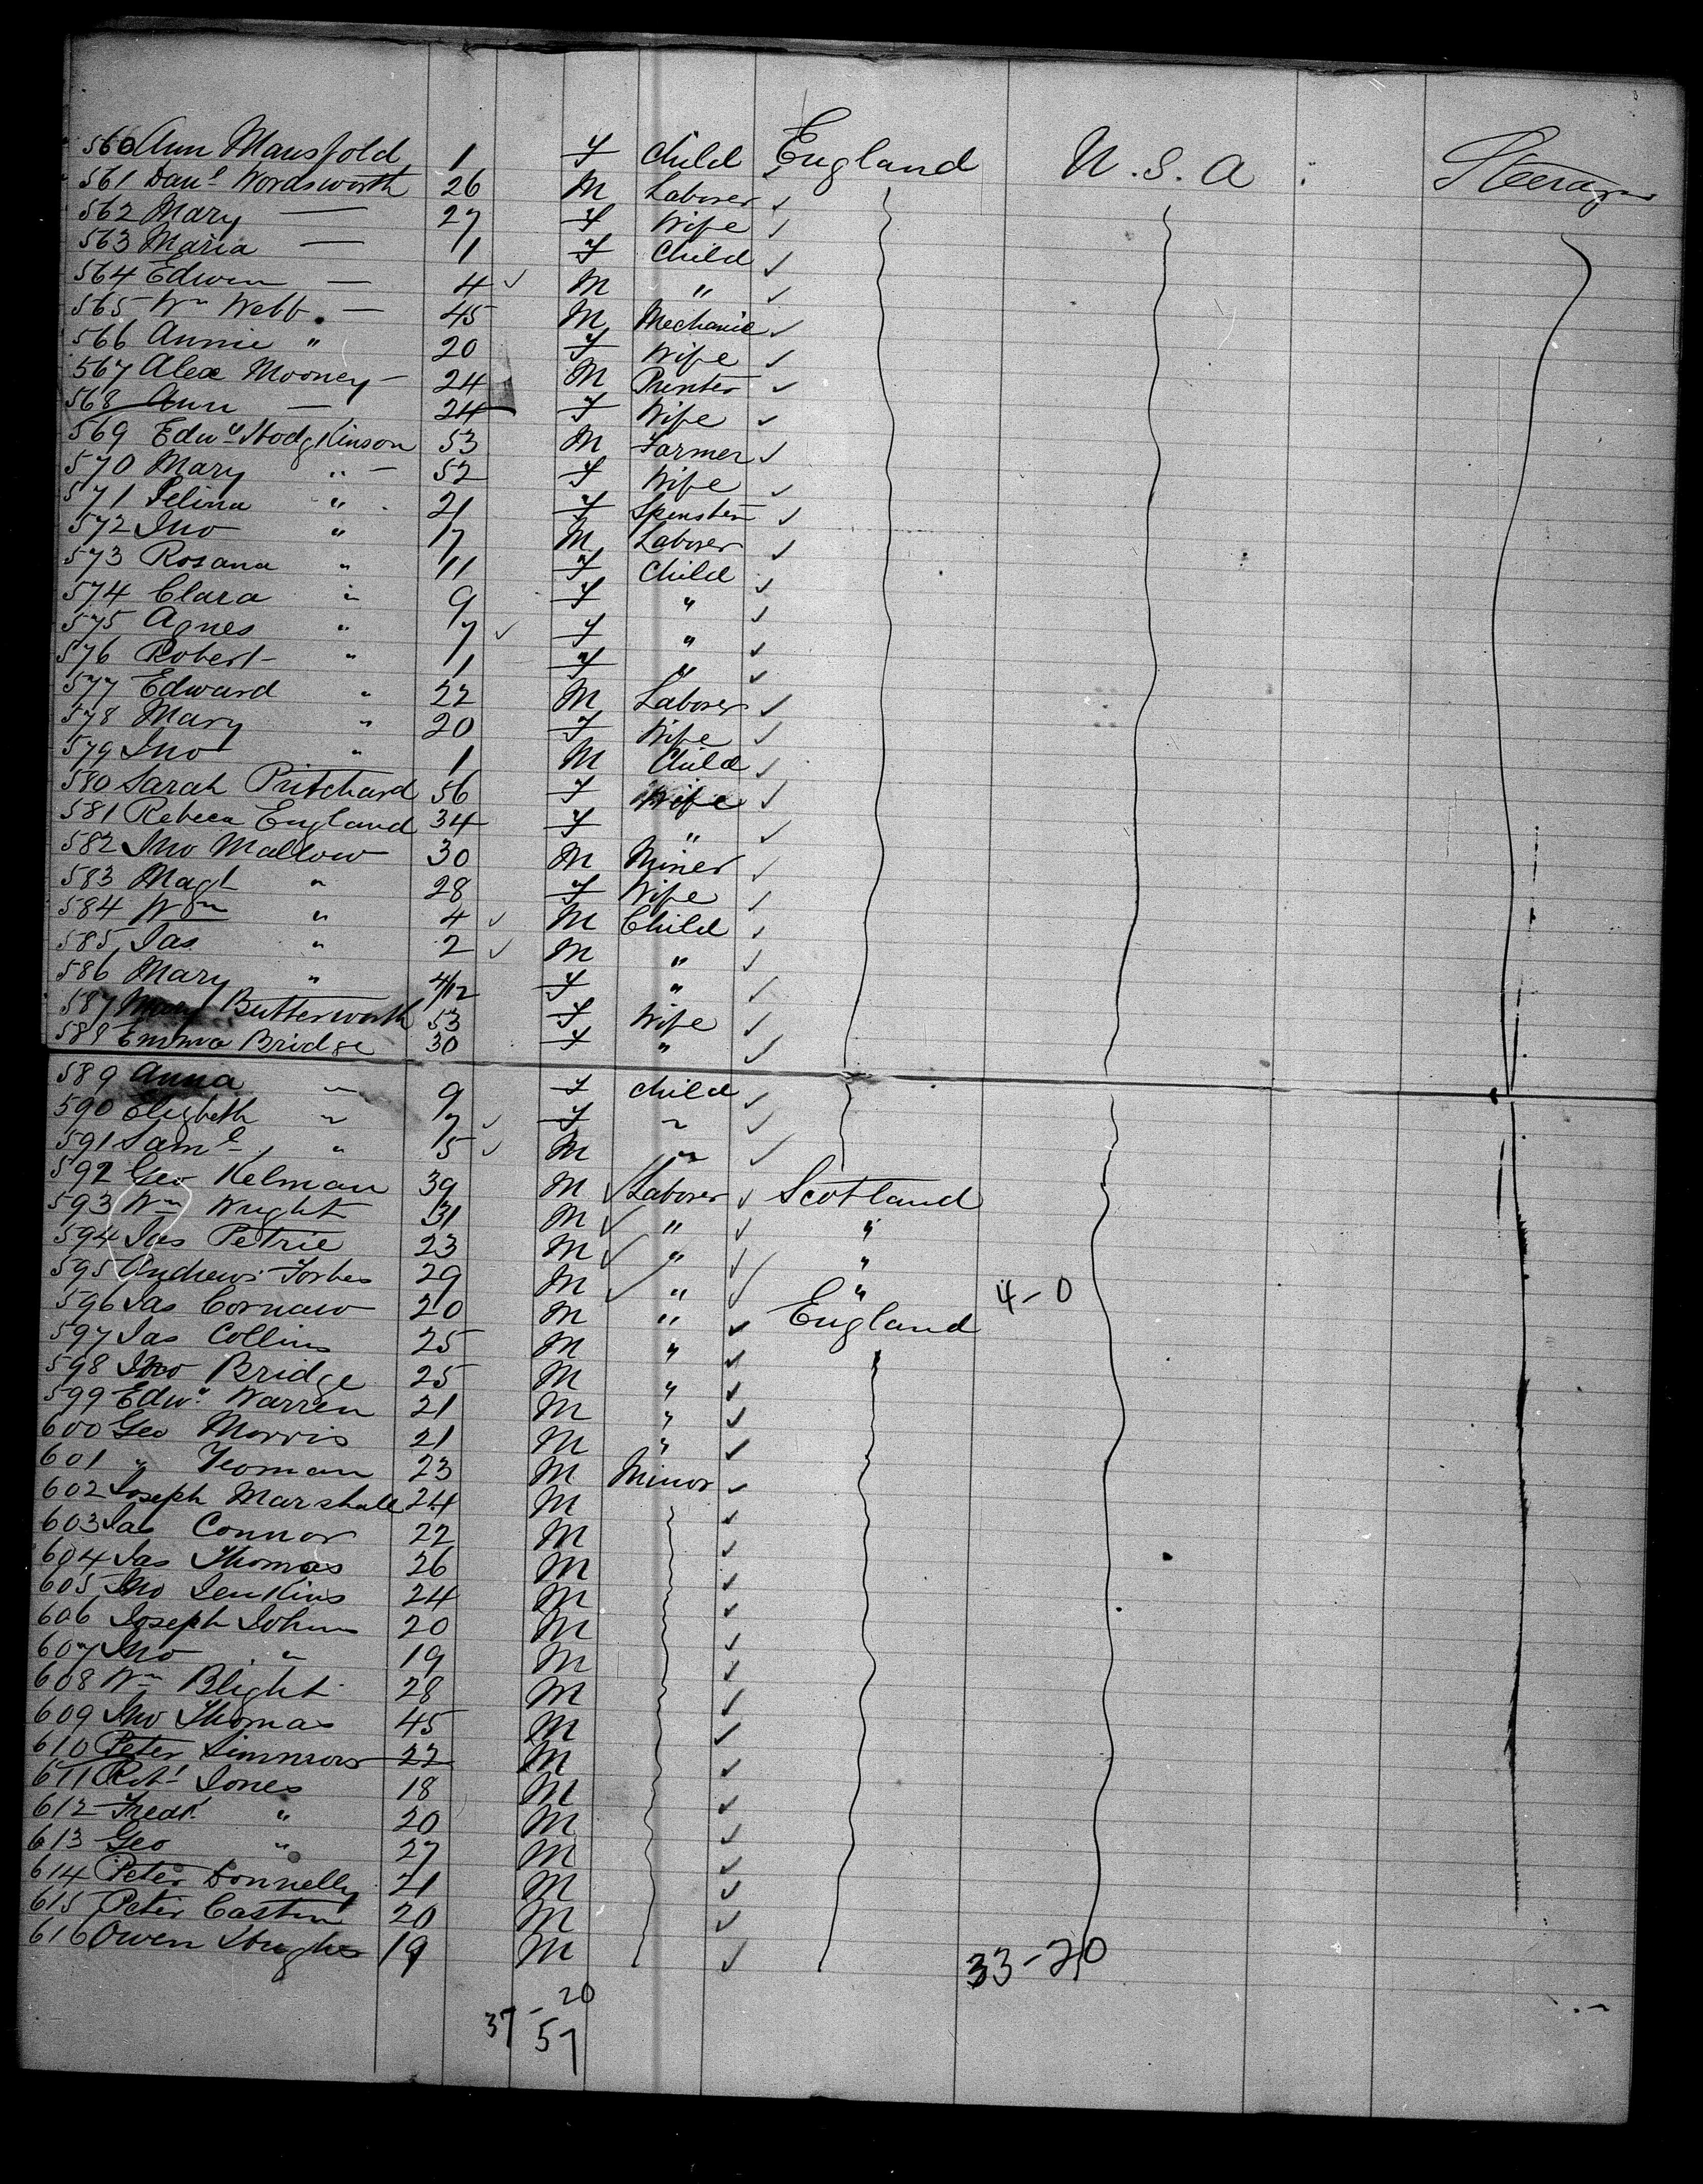 560 Ann Mansfold 1 F Child England U.S.A Steerage
561 Danl Wordsworth 26 M Laborer ✓
562 Mary — 27 F Wife ✓
563 Maria — 11 F Child ✓
564 Edwin — 4 ✓ M " ✓
565 Wm Webb — 45 M Mechanic ✓
566 Annie " 20 F Wife ✓
567 Alex Mooney — 24 M Printer ✓
568 Ann — 24 F Wife ✓
569 Edwd Hodgkinson 53 M Farmer ✓
570 Mary " — 52 F Wife ✓
571 Selina " 21 F Spinster ✓
572 Jno " 17 M Laborer ✓
573 Rosana " 11 F Child ✓
574 Clara " 9 F " ✓
575 Agnes " 7 ✓ F " ✓
576 Robert " 1 F " ✓
577 Edward " 22 M Laborer ✓
578 Mary " 20 F Wife ✓
579 Jno " 1 M Child ✓
580 Sarah Pritchard 56 F Wife ✓
581 Rebeca England 34 F " ✓
582 Jno Mallow 30 M Miner ✓
583 Magt " 28 F Wife ✓
584 Wm " 4 ✓ M Child ✓
585 Jas " 2 ✓ M " ✓
586 Mary " 4/12 F " ✓
587 Mary Butterworth 53 F Wife ✓
588 Emma Bridge 30 F " ✓
589 Anna " 9 F Child ✓
590 Elizbeth " 7 ✓ F " ✓
591 Saml " 5 ✓ M " ✓
592 Geo Kelman 39 M ✓ Laborer ✓ Scotland
593 Wm Wright 31 M ✓ " ✓ "
594 Jas Petrie 23 M ✓ " ✓ "
595 Andrew Forbes 29 M ✓ " ✓ " 4-0
596 Jas Cornaw 20 M " ✓ England
597 Jas Collins 25 M " ✓
598 Jno Bridge 25 M " ✓
599 Edwd Warren 21 M " ✓
600 Geo Morris 21 M " ✓
601 " Yeoman 23 M Minor ✓
602 Joseph Marshall 24 M ✓
603 Jas Connor 22 M ✓
604 Jas Thomas 26 M ✓
605 Jno Jenkins 24 M ✓
606 Joseph Johns 20 M ✓
607 Jno " 19 M ✓
608 Wm Blight 28 M ✓
609 Jno Thomas 45 M ✓
610 Peter Simmons 22 M ✓
611 Robt Jones 18 M ✓
612 Fredk " 20 M ✓
613 Geo " 27 M ✓
614 Peter Donnelly 21 M ✓
615 Peter Castin 20 M ✓
616 Owen Hughes 19 M ✓ 33-20
37-20
57